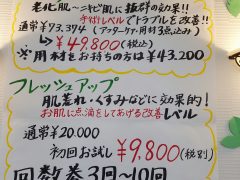 老化肌～ニキビ肌に抜群の効果!!
手付けレベルでトラブルを改善!!
通常 ¥73,394 (アフターケア・用材3点込み)
↳ ¥49,800(税込)
※用材をお持ちの方は¥43,200
フレッシュアップ
肌荒れ・くすみなどに効果的!
お肌に点滴をしてあげる改善レベル
通常¥20,000
初回お試し ¥9,800(税別)
回数券3回~10回